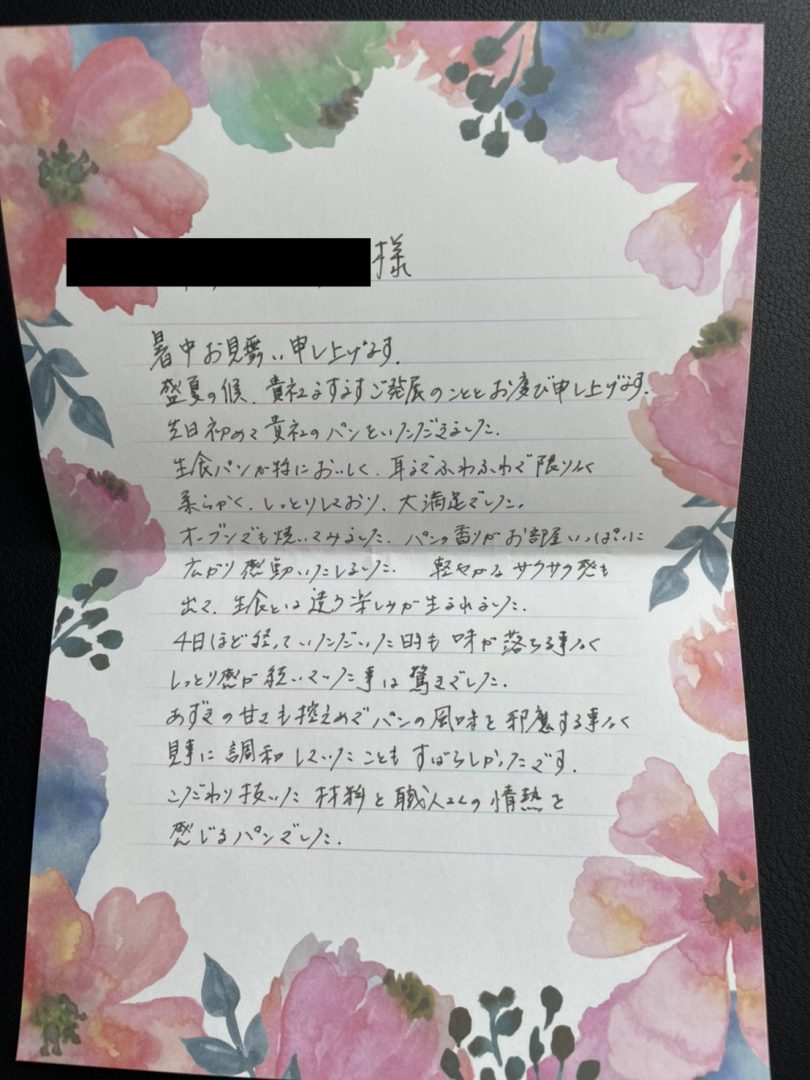 様
暑中お見舞い申し上げます。
盛夏の候、貴社ますますご発展のこととお慶び申し上げます。
先日初めて貴社のパンをいただきました。
生食パンが特においしく、耳までふわふわで限りなく
柔らかく、しっとりしており、大満足でした。
オーブンでも焼いてみました。パンの香りがお部屋いっぱいに
広がり感動いたしました。 軽やかなサクサク感も
出て、生食とは違う楽しみが生まれました。
4日ほど経っていただいた時も味が落ちる事なく
しっとり感が続いていた事は驚きでした。
あずきの甘さも控えめでパンの風味を邪魔する事なく
見事に調和していたこともすばらしかったです。
こだわり抜いた材料と職人さんの情熱を
感じるパンでした。